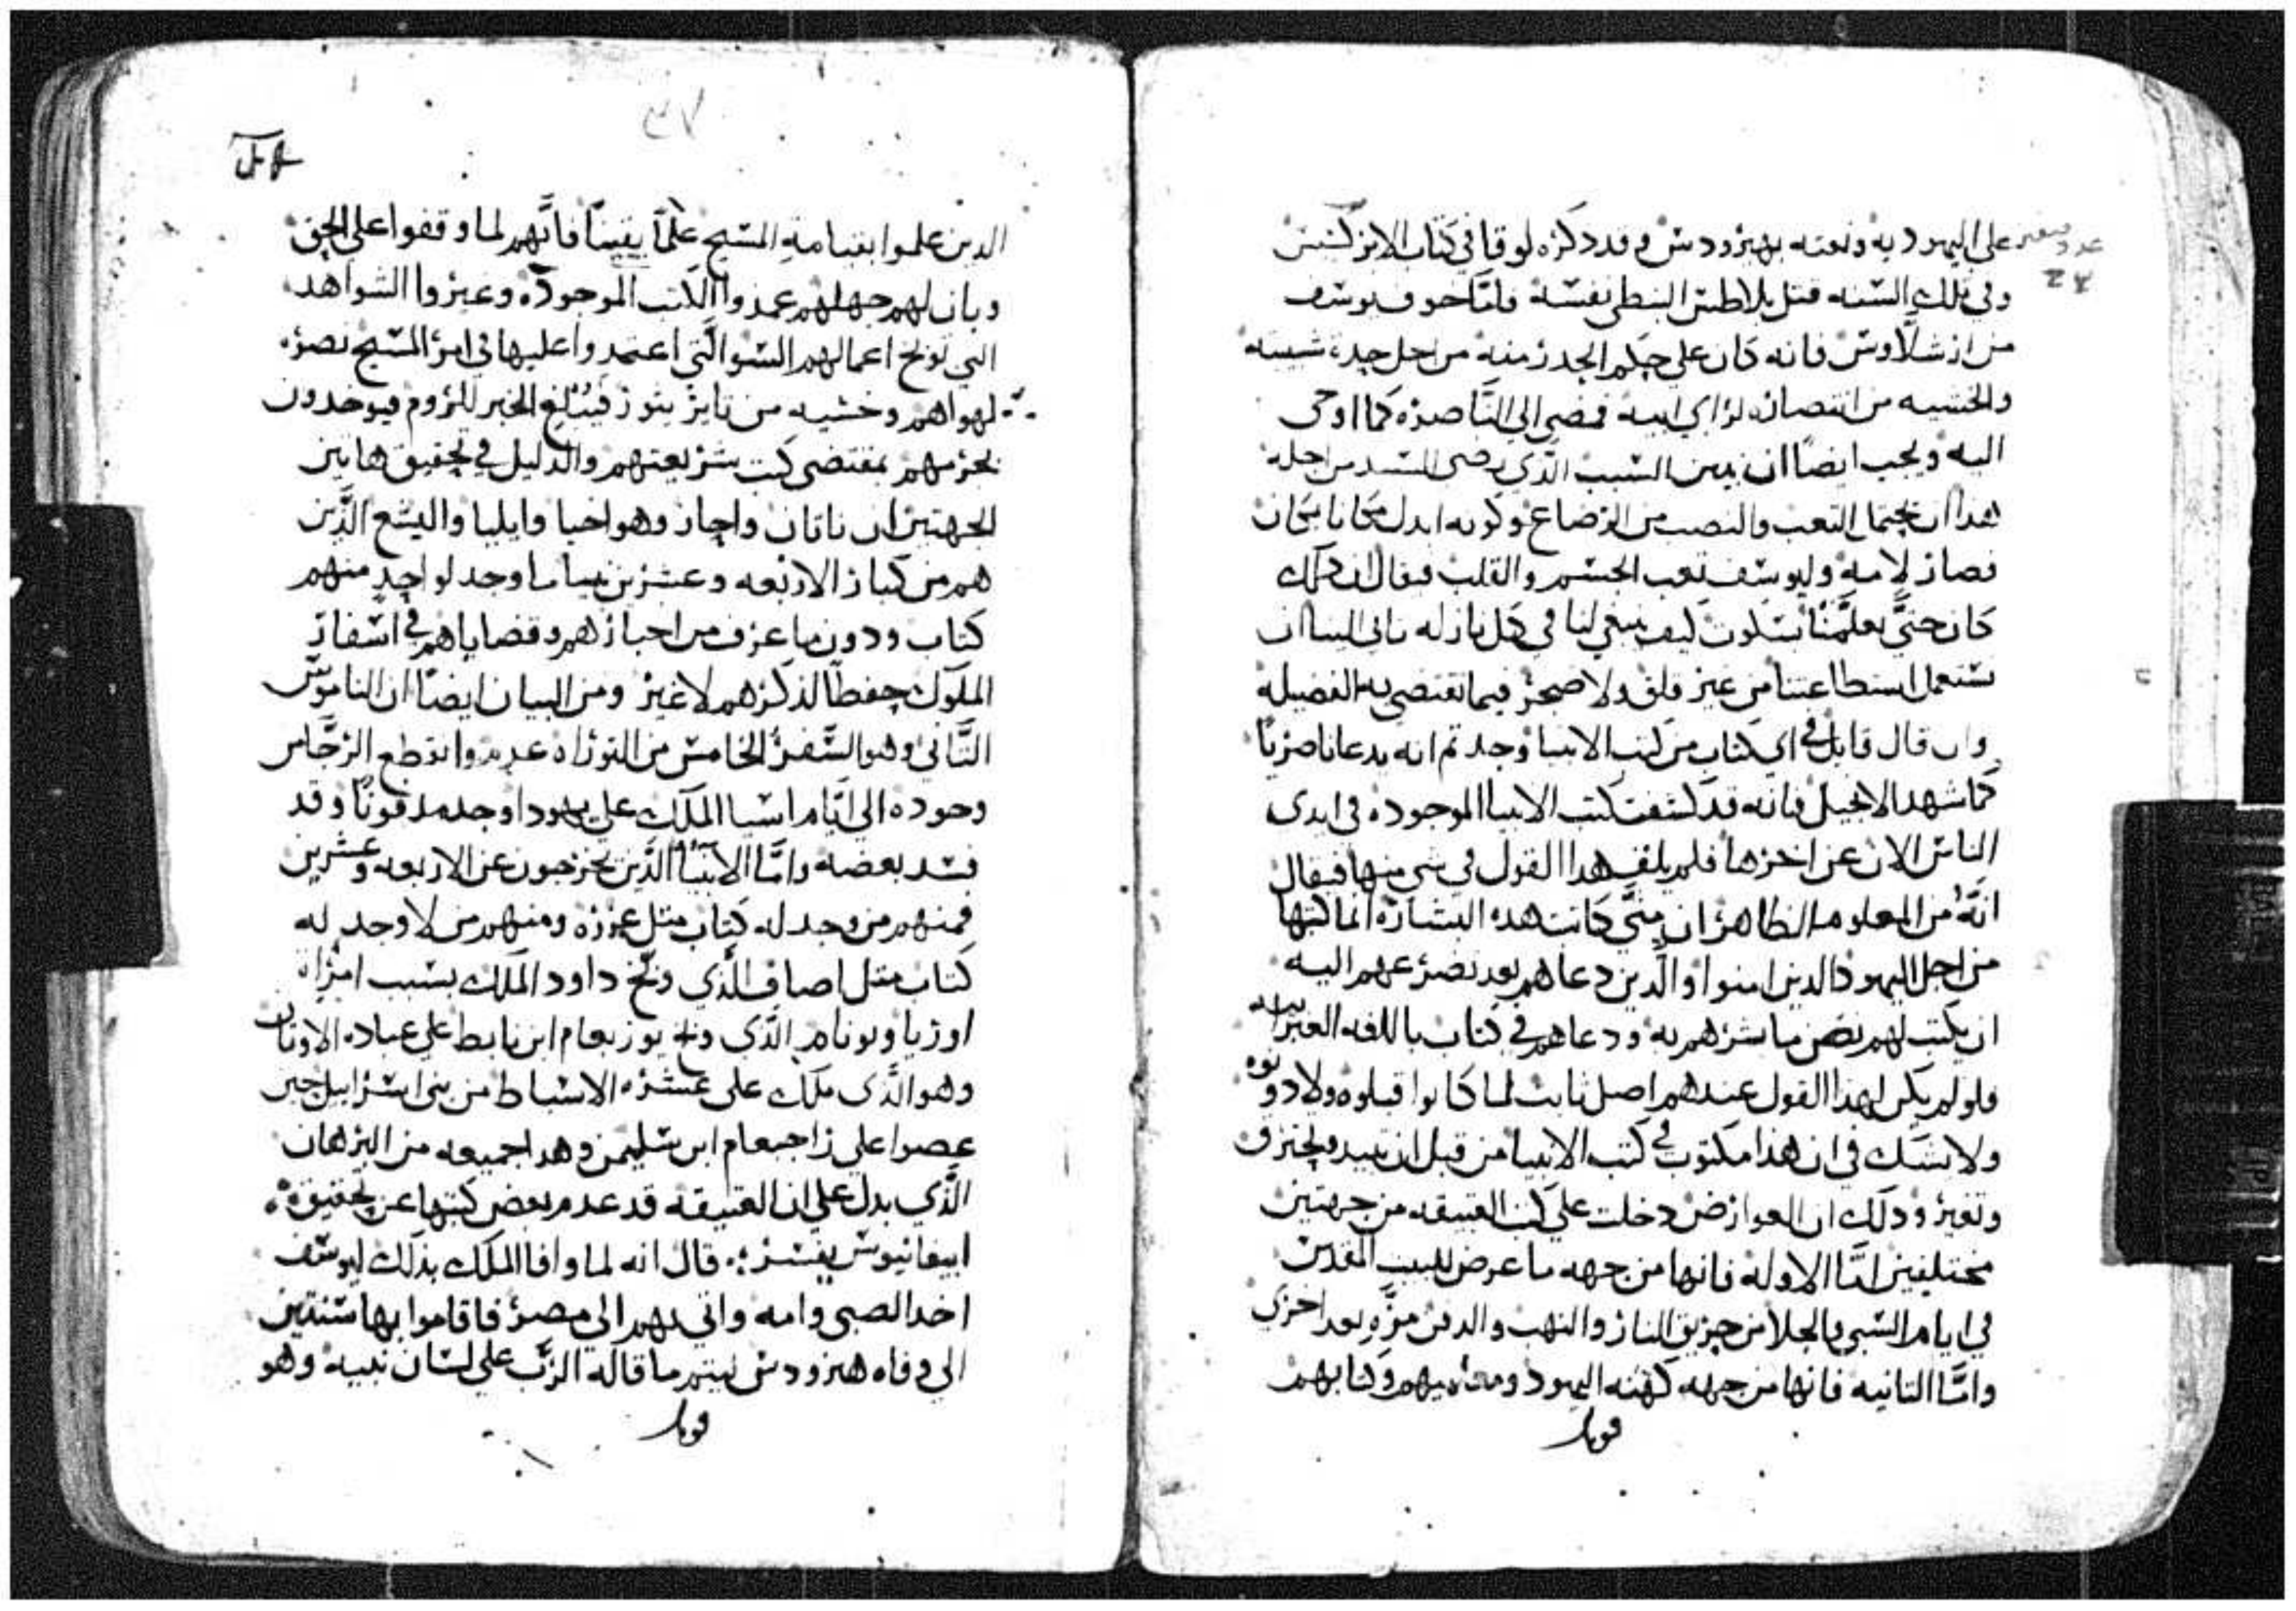 على اليهوديه ونعته بهيرودس وقد ذكره لوقا في كتاب الابركسيس
وفي تلك السنه قتل بلاطس النبطي نفسه فاما خوف يوسف
من ارشلاوس فانه كان على حكم الحدر منه من اجل حده شبيبته
والخشيه من انتصاره لراي ابيه فمضى الى الناصره كما اوحى
اليه ويجب ايضا ان نبين السبب الذي رضى السيد من اجله
هدا ان يحتمل التعب والنصب من الرضاع وكونه ابدل مكانا بمكان
فصار لامه وليوسف تعب الجسم والقلب فيقال ان دلك
كان حتى يعلمنا بسلوت كيف ينبغي لنا في كل نازله تاتي الينا ان
نستعمل استطاعتنا من غير قلق ولا ضجر فيما تقتضي به الفضيله
وان قال قايل في اي كتاب من كتب الانبيا وجد تم انه يدعا ناصريا
كما شهد الانجيل فانه قد كشفت كتب الانبيا الموجوده في ايدي
الناس الان عن اخرها فلم يلف هدا القول في شي منها فيقال
انه من المعلوم الظاهر ان متى كانت هده البشاره انما كتبها
من اجل اليهود الدين امنوا والدين دعاهم بعد تضرعهم اليه
ان يكتب لهم نص ما بشرهم به ودعاهم في كتاب باللغه العبرانيه
فلو لم يكن لهدا القول عندهم اصل ثابت لما كانوا قبلوه ولا دونوه
ولا نشك في ان هدا مكتوب في كتب الانبيا من قبل ان تبيد وتحترق
وتغير ودلك ان العوارض دخلت على كتب العتيقه من جهتين
مختلفتين اما الاوله فانها من جهه ما عرض للبيت المقدس
في ايام السبي والجلا من حريق النار والنهب والدفن مره بعد اخرى
واما التانيه فانها من جهه كهنه اليهود ومعلميهم وكتابهم
قوبل
٣٧
الدين علموا بقيامه المسيح علما يقينا فانهم لما وقفوا على الحق
وبان لهم جهلهم عمدوا الكتب الموجوده وغيروا الشواهد
التي توبخ اعمالهم السو التي اعتمدوا عليها في امر المسيح نصره
لهواهم وخشيه من تاير يتور فيبلغ الخبر للروم فيوخدون
بجرمهم بمقتضى كتب شريعتهم والدليل في تحقيق هاتين
الجهتين ان ناتان واحار وهو اخيا وايليا واليشع الدين
هم من كبار الاربعه وعشرين نبيا ما وجد لواحد منهم
كتاب ودون ما عرف من اخبارهم وقضاياهم في اسفار
الملوك حفظا لدكرهم لا غير ومن البيان ايضا ان الناموس
التاني وهو السفر الخامس من التوراه عدم وانقطع الرجا من
وجوده الى ايام اشيا الملك على يهودا وجد مدفونا وقد
فسد بعضه واما الانبيا الدين يخرجون عن الاربعه وعشرين
فمنهم من وجد له كتاب متل عزره ومنهم من لا وجد له
كتاب متل اصاف الدي وبخ داود الملك بسبب امراه
اوريا ويونام الدي وبخ يوربعام ابن نابط على عباده الاوتان
وهو الدي ملك على عشره الاسباط من بني اسراييل حين
عصوا على راجبعام ابن سليمن وهدا جميعه من البرهان
الدي يدل على ان العتيقه قد عدم بعض كتبها عن تحقيق
ابيفانيوس يفسر قال انه لما وافا الملك بدلك ليوسف
اخد الصبي وامه واتي بهم الى مصر فاقاموا بها سنتين
الى وفاه هيرودس ليتم ما قاله الرب على لسان نبيه وهو
قوبل